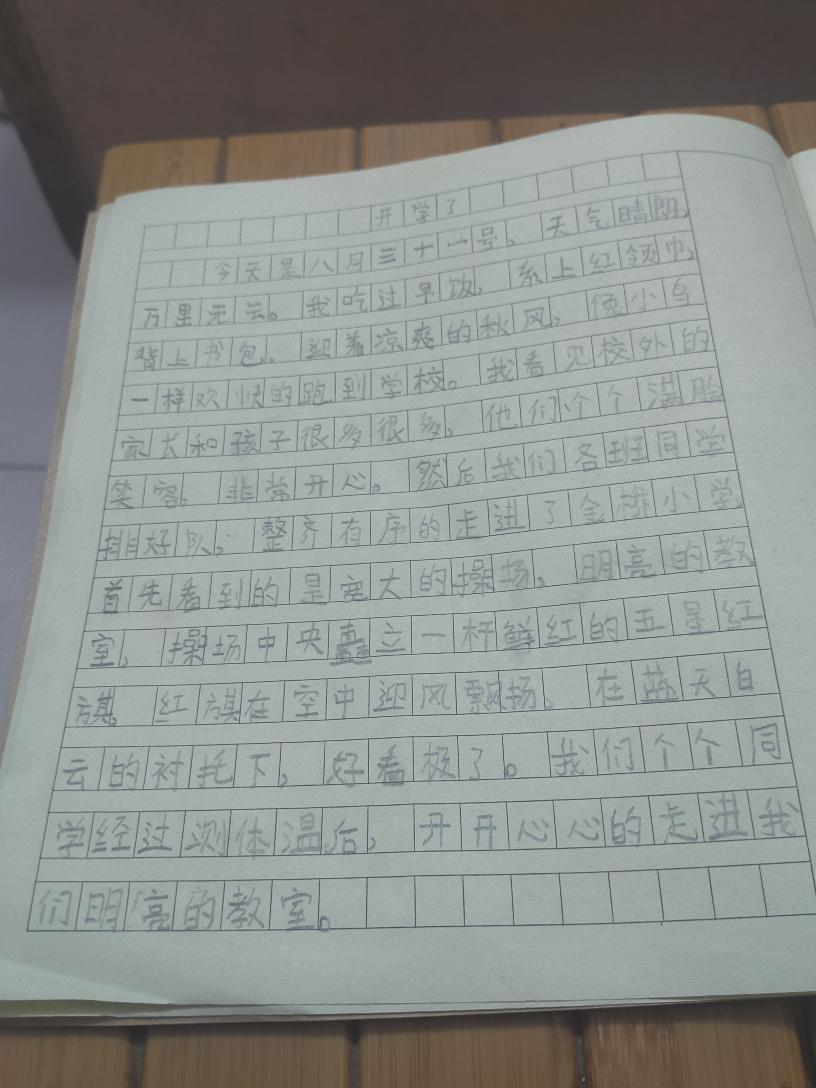 开学了
今天是八月三十一号，天气晴朗，
万里无云。我吃过早饭，系上红领巾，
背上书包，迎着凉爽的秋风，像小鸟
一样欢快的跑到学校。我看见校外的
家长和孩子很多很多，他们个个满脸
笑容，非常开心。然后我们各班同学
排好队，整齐有序的走进了金桥小学，
首先看到的是宽大的操场，明亮的教
室，操场中央矗立一杆鲜红的五星红
旗，红旗在空中迎风飘扬。在蓝天白
云的衬托下，好看极了。我们个个同
学经过测体温后，开开心心的走进我
们明亮的教室。